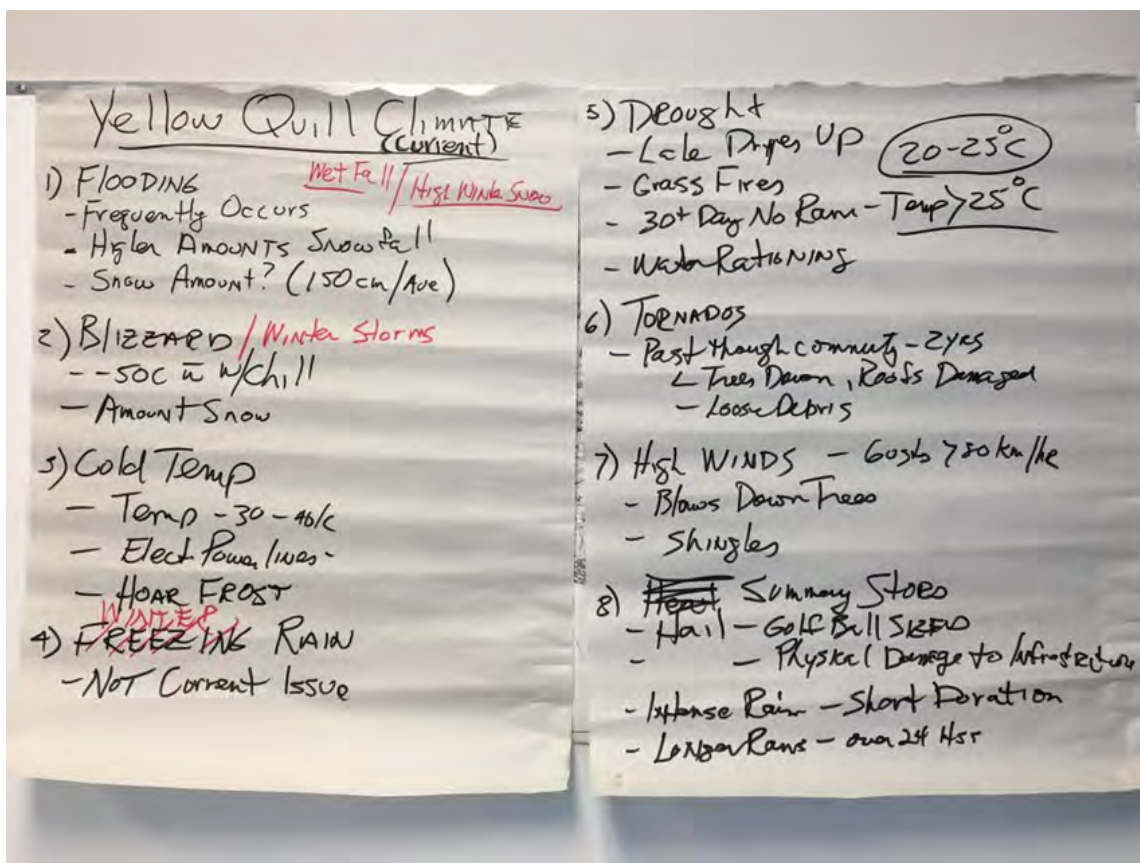 Yellow Quill Climate
(Current)
Wet Fall / High Winter Snow
1) FLOODING
- Frequently Occurs
- Higher AMOUNTS Snowfall
- Snow Amount? (150cm/Ave)
2) BLIZZARD / Winter Storms
- -50c w/chill
- Amount Snow
3) Cold Temp
- Temp -30 -40/c
- Elect. Power lines -
- HOAR FROST
WINTER
4) FREEZING RAIN
- NOT Current Issue
5) Drought
- Lake Dryes UP
20-25°C
- Grass Fires
- 30+ Day No Rain - Temp > 25°C
- Water Rationing
6) TORNADOS
- Past though community - 2yrs
Trees Down, Roofs Damaged
- Loose Debris
7) High WINDS - Gusts > 80 km/hr
- Blows Down Trees
- Shingles
8) Heat Summary Storo
- Hail - Golf Ball SIZED
- - Physical Damage to Infrastructure
- Intense Rain - Short Duration
- Longer Rains - over 24 Hrs